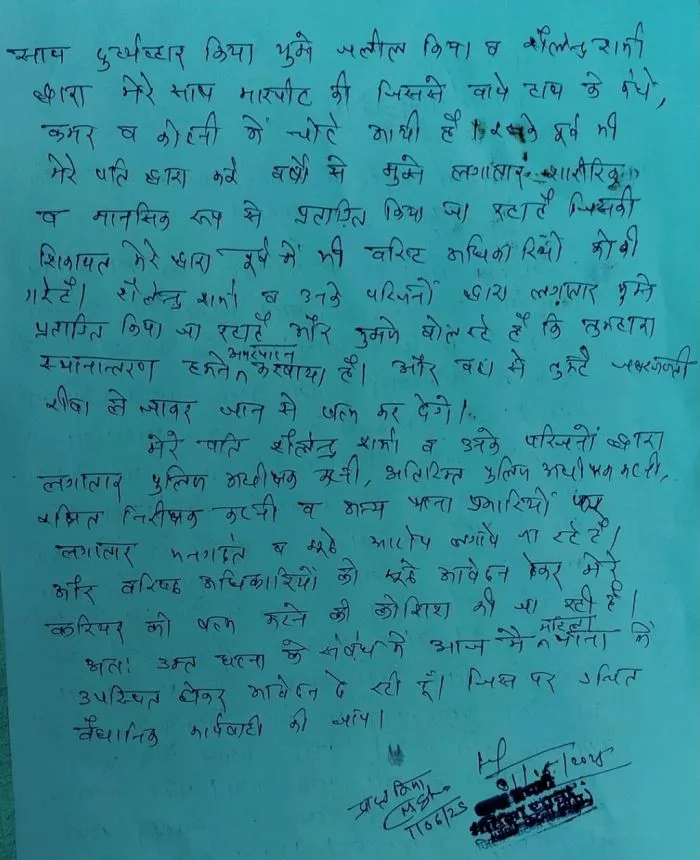 साथ दुर्व्यवहार किया मुझे जलील किया व शैलेन्द्र शर्मा
द्वारा मेरे साथ मारपीट की जिससे बाये हाथ के कंधे,
कमर व कोहनी में चोटे आयी है। इसके पूर्व भी
मेरे पति द्वारा कई वर्षों से मुझे लगातार शारीरिक
व मानसिक रूप से प्रताड़ित किया जा रहा है जिसकी
शिकायत मेरे द्वारा पूर्व में भी वरिष्ट अधिकारियों को की
गई है। शैलेन्द्र शर्मा व उनके परिजनों द्वारा लगातार मुझे
प्रताड़ित किया जा रहा है और मुझसे बोल रहे है कि तुम्हारा
स्थानान्तरण हमने अमरपाटन करवाया है। और वहां से तुम्हे जबरजस्ती
रीवा ले जाकर जान से खत्म कर देंगे।
मेरे पति शैलेन्द्र शर्मा व उनके परिजनों द्वारा
लगातार पुलिस अधीक्षक कटनी, अतिरिक्त पुलिस अधीक्षक कटनी,
रक्षित निरीक्षक कटनी व अन्य थाना प्रभारियों पर
लगातार मनगढंत व झूठे आरोप लगाये जा रहे है।
और वरिष्ठ अधिकारियों को झूठे आवेदन देकर मेरे
करियर को खत्म करने की कोशिश की जा रही है।
अतः उक्त घटना के संबंध में आज मै महिला थाना में
उपस्थित होकर आवेदन दे रही हूँ। जिस पर उचित
वैधानिक कार्यवाही की जाए।
प्राप्त किया
1/06/25